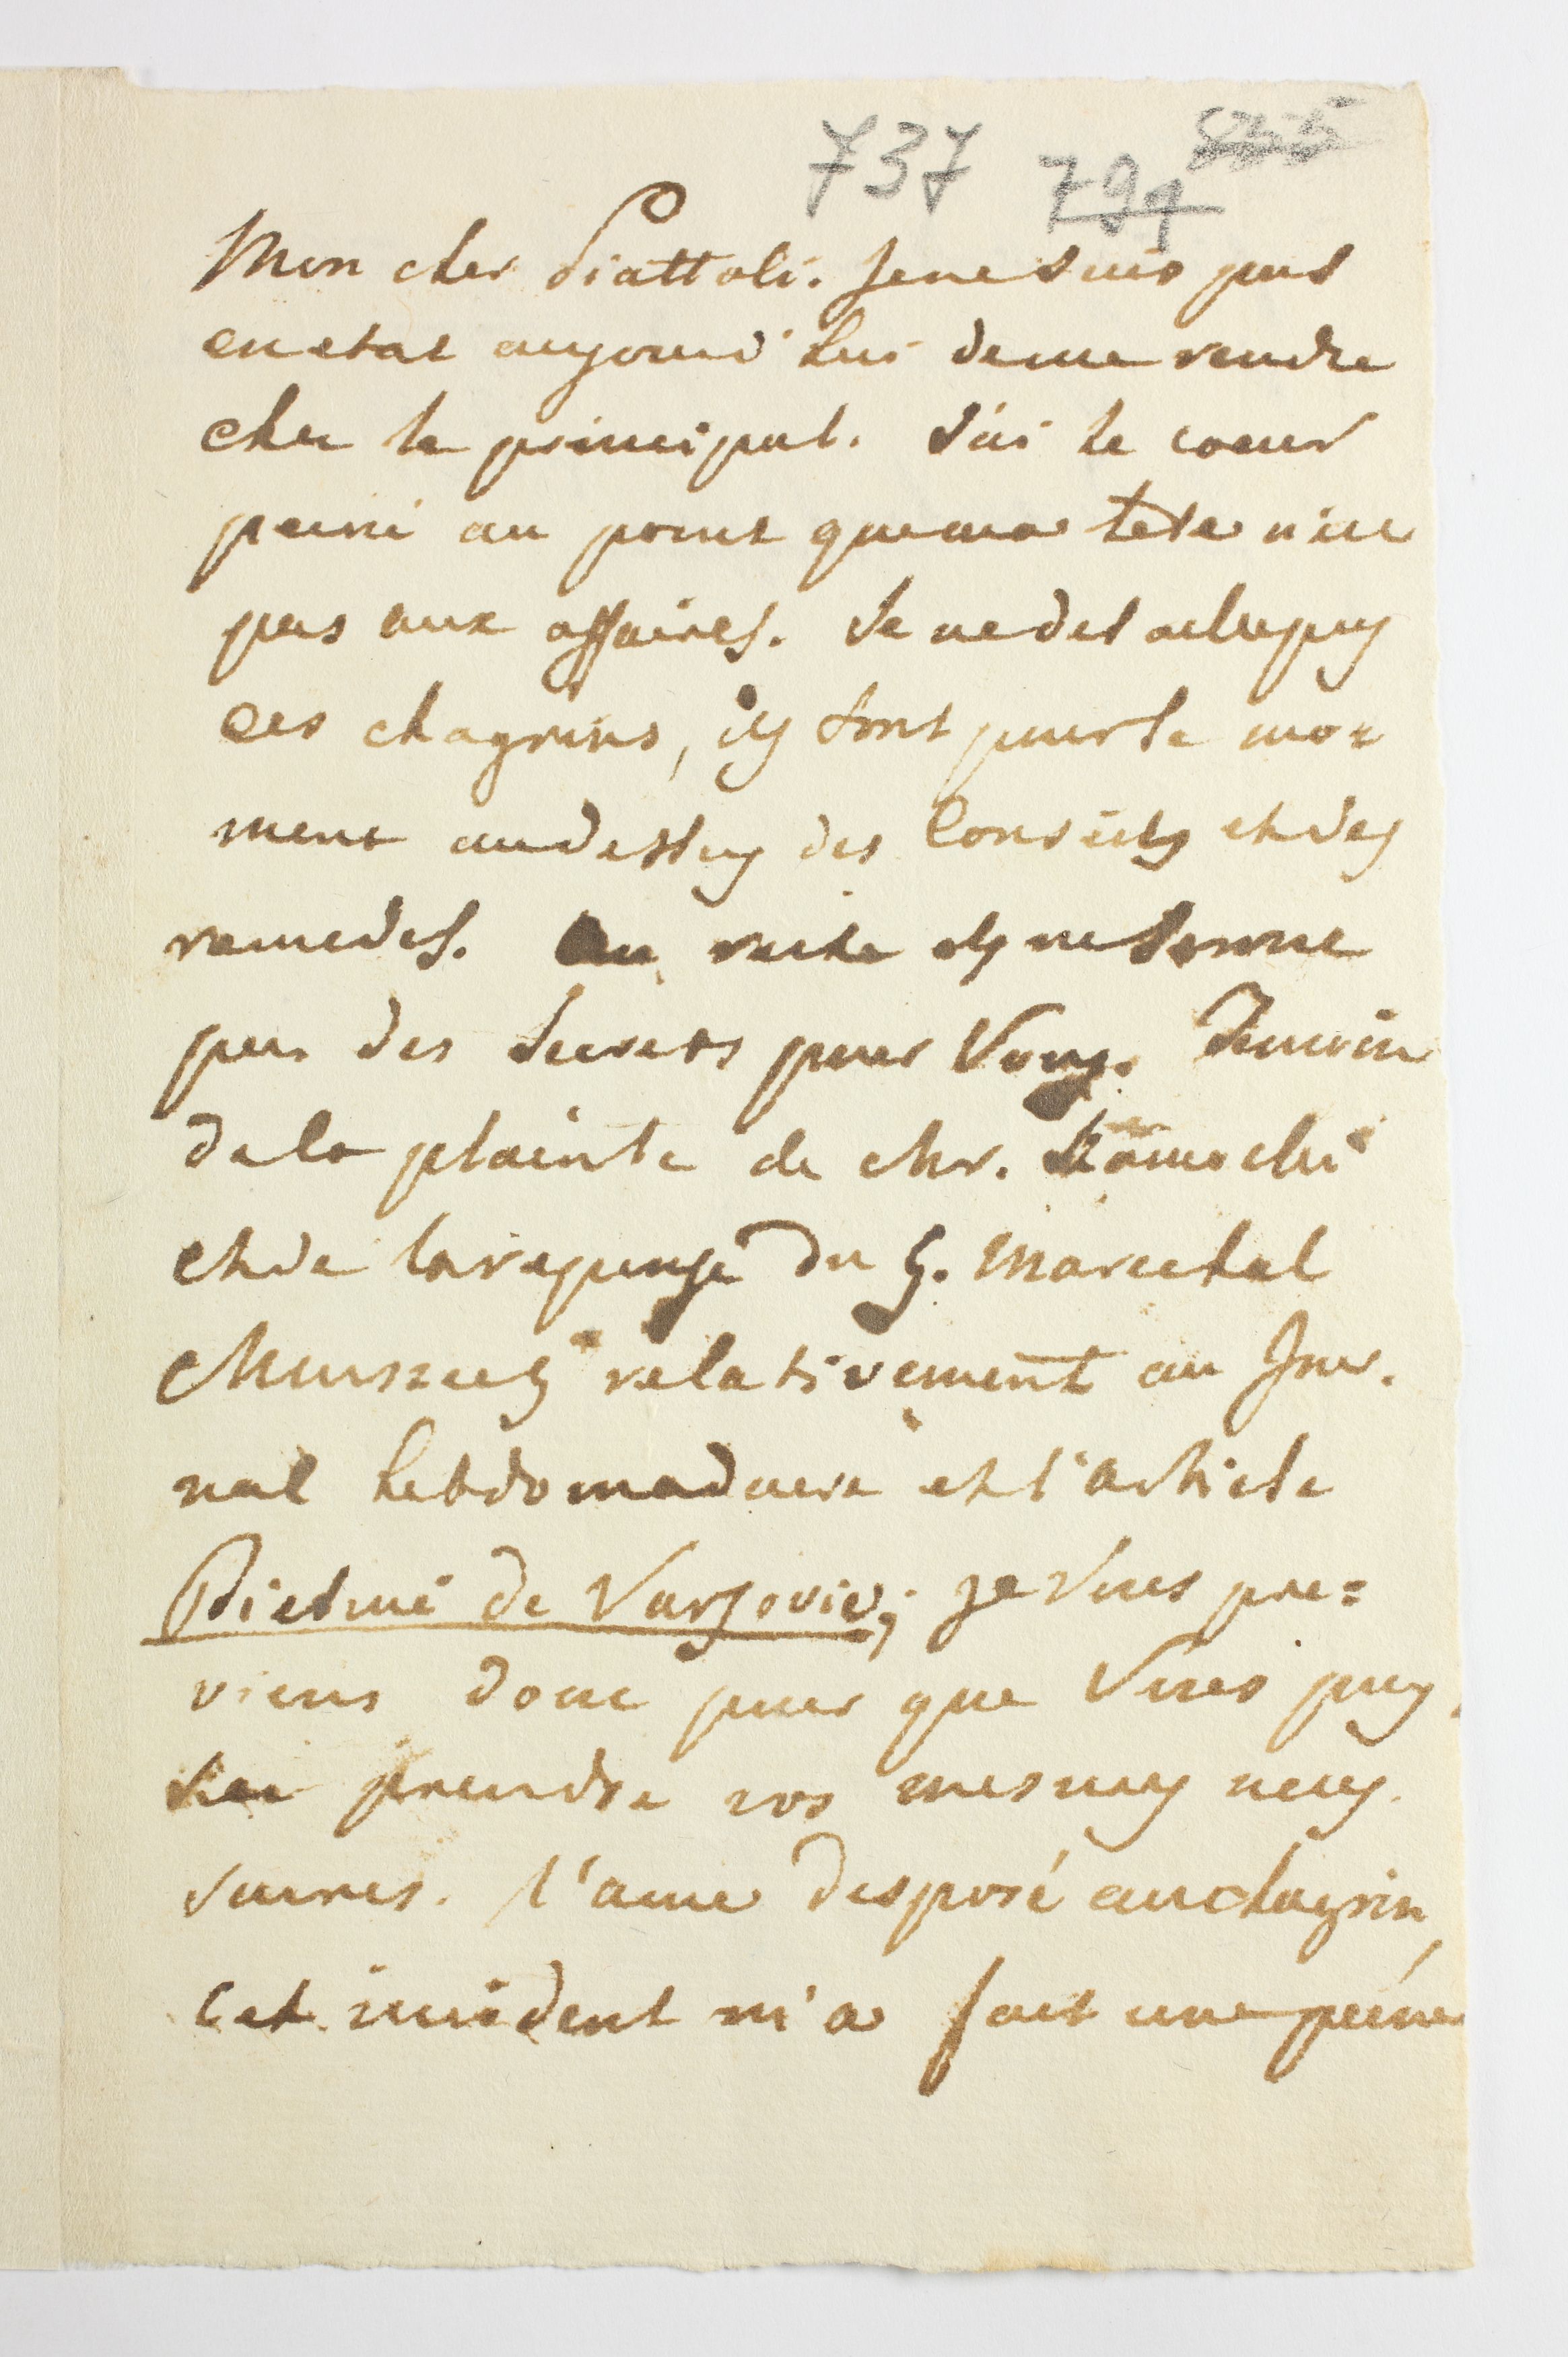 737 799
Mon cher Piattoli. Je ne suis pas
en etat aujourd'hui de me rendre
chez le principal. J'ai le coeur
peiné au point que ma tete n'est
pas aux affaires. Je ne
ces chagrins, ils sont pour le mo=
ment audessus des Conseils et des
remedes. Au reste ils ne seront
pas des secrets pour Vous. Temoin
de la plainte de Mr.
et de la reponse du G. Marechal
Mniszech relativement au Jour.
nal hebdomadaire et l'article
de Varsovie; je Vous pre=
viens donc pour que Vous puis
siez prendre vos mesures neces.
saires. l'ame disposé au chagrin,
cet incident m'a fait une peine